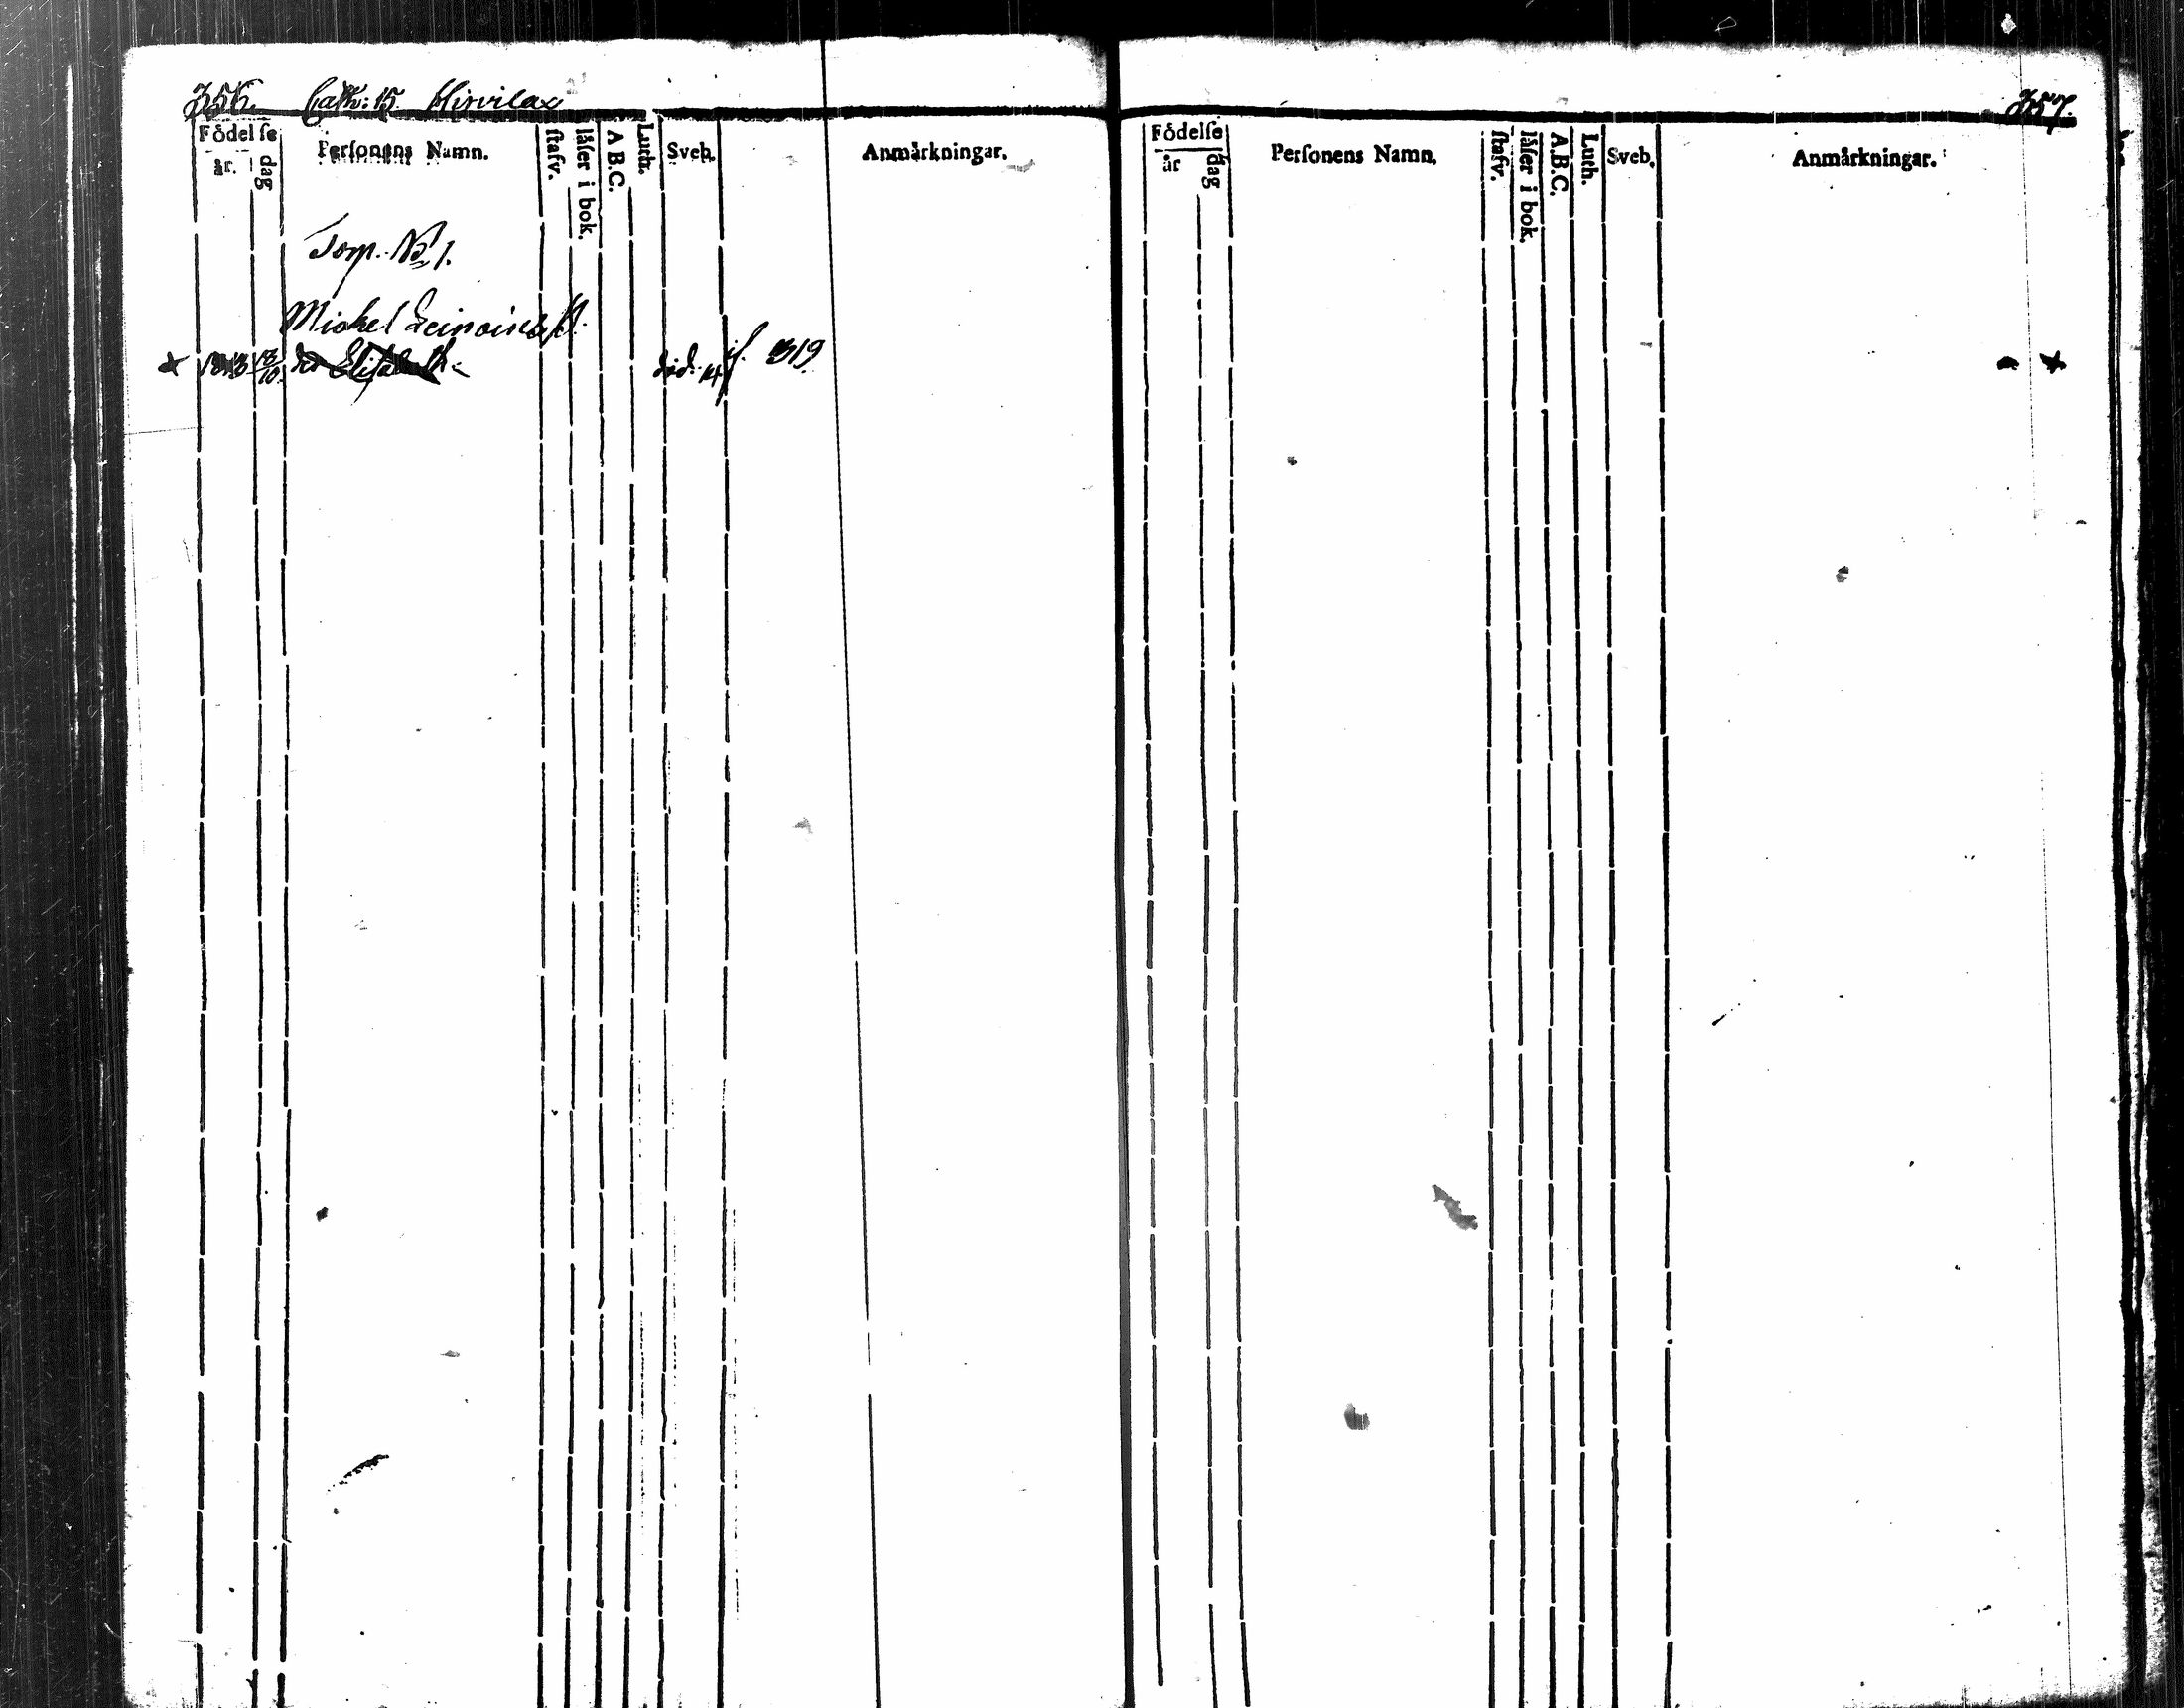 356. Cath: 15. Hirvilax
Födelſe
år. dag
Perſonens Namn.
ſtafv.
låſer i bok.
A B C.
Luth.
Sveb.
Anmärkningar.
Torp. No 1.
Michel Leinoins
1813 13/10 Elisabeth
död. 14 f. 319
357.
Födelſe
år dag
Perſonens Namn.
ſtafv.
låſer i bok.
A.B.C.
Luth.
Sveb.
Anmärkningar.